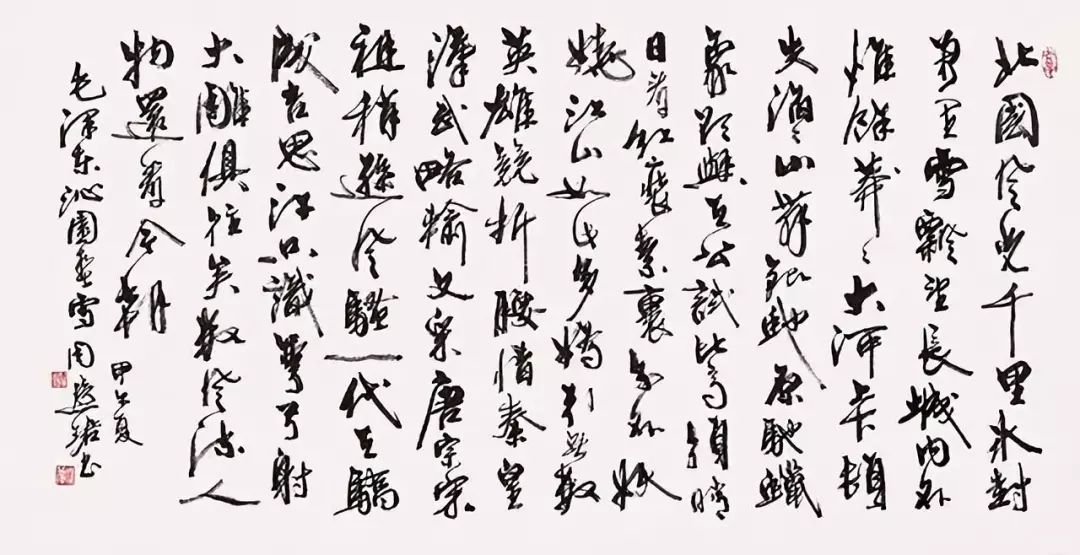 北國風光千里冰封
萬里雪飄望長城內外
惟餘莽莽大河上下頓
失滔滔山舞銀蛇原馳蠟
象欲與天公試比高須晴
日看紅裝素裹分外妖
嬈江山如此多嬌引無數
英雄競折腰惜秦皇
漢武略輸文采唐宗宋
祖稍遜風騷一代天驕
成吉思汗只識彎弓射
大雕俱往矣數風流人
物還看今朝
甲午夏
毛澤東沁園春雪周書